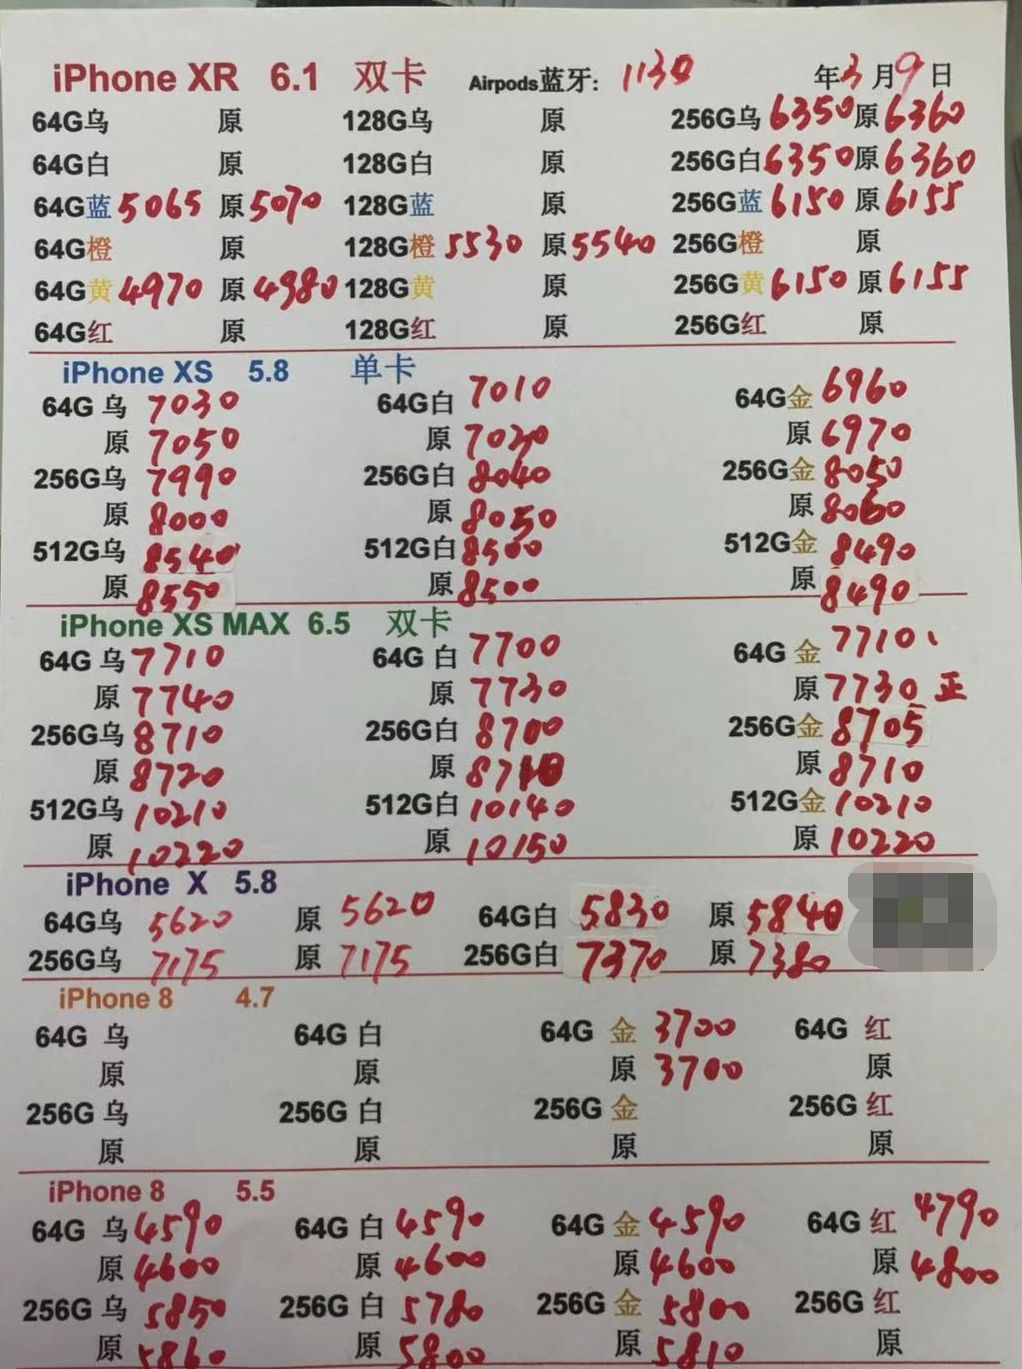 iPhone XR 6.1 双卡 Airpods蓝牙: 1130 年3月9日
64G乌 原 128G乌 原 256G乌 6350 原 6360
64G白 原 128G白 原 256G白 6350 原 6360
64G蓝 5065 原 5070 128G蓝 原 256G蓝 6150 原 6155
64G橙 原 128G橙 5530 原 5540 256G橙 原
64G黄 4970 原 4980 128G黄 原 256G黄 6150 原 6155
64G红 原 128G红 原 256G红 原
iPhone XS 5.8 单卡
64G 乌 7030 64G白 7010 64G金 6960
原 7050 原 7020 原 6970
256G乌 7990 256G白 8040 256G金 8050
原 8000 原 8050 原 8060
512G乌 8540 512G白 8500 512G金 8490
原 8550 原 8500 原 8490
iPhone XS MAX 6.5 双卡
64G 乌 7710 64G 白 7700 64G 金 7710、
原 7740 原 7730 原 7730 正
256G乌 8710 256G白 8700 256G金 8705
原 8720 原 8710 原 8710
512G乌 10210 512G白 10140 512G金 10210
原 10220 原 10150 原 10220
iPhone X 5.8
64G乌 5620 原 5620 64G白 5830 原 5840
256G乌 7175 原 7175 256G白 7370 原 7380
iPhone 8 4.7
64G 乌 64G 白 64G 金 3700 64G 红
原 原 原 3700 原
256G 乌 256G 白 256G 金 256G 红
原 原 原 原
iPhone 8 5.5
64G 乌 4590 64G 白 4590 64G 金 4590 64G 红 4790
原 4600 原 4600 原 4600 原 4800
256G 乌 5850 256G 白 5780 256G 金 5800 256G 红
原 5860 原 5800 原 5810 原